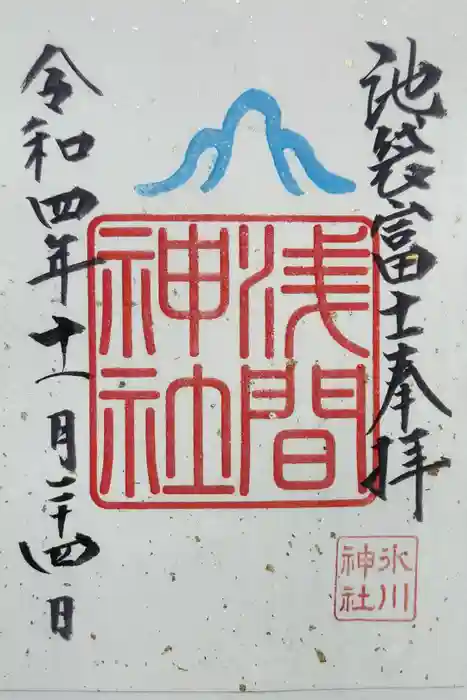 池袋富士奉拝
浅間
神社
氷川
神社
令和四年十一月二十四日